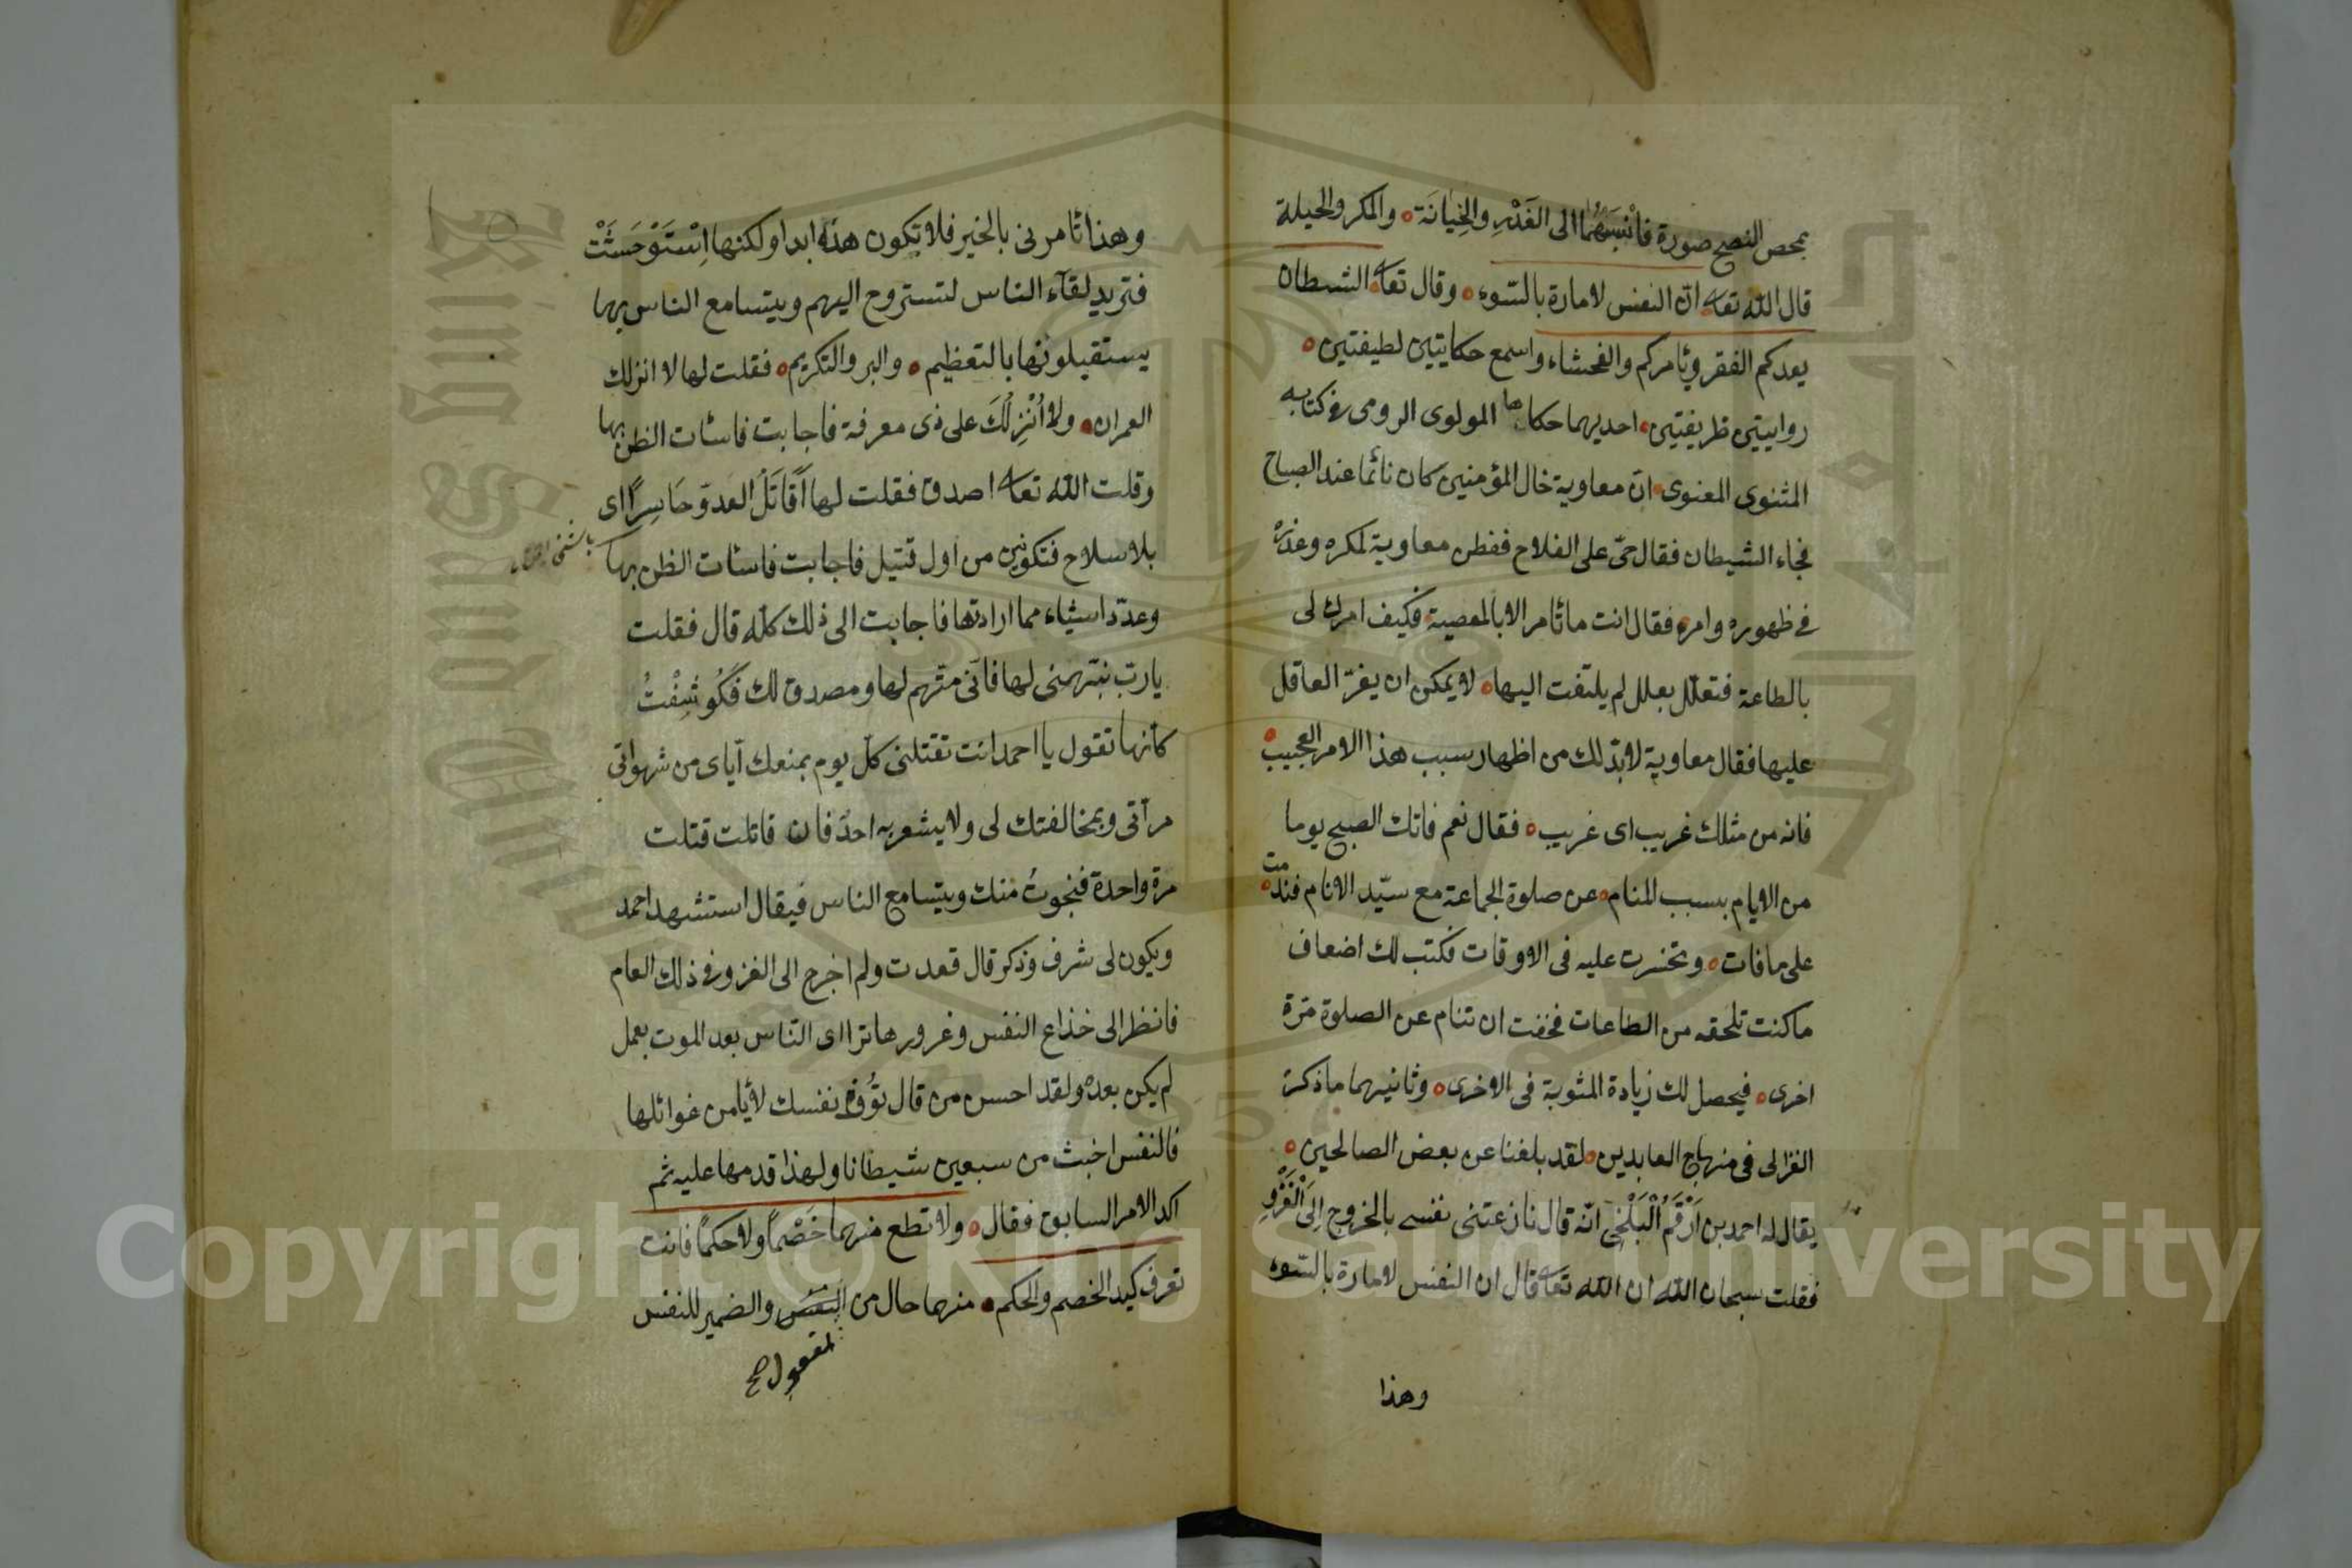 بمحص النصح صورة فانسبهما الى الغَدْرِ والخِيانَة والمكر والحيلة
قال الله تعا ان النفس لامارة بالسّوء وقال تعا الشيطان
يعدكم الفقر ويأمركم والفحشاء واسمع حكايتين لطيفتين
روايتين ظريفتين احديهما حكاها المولوى الرومى فى كتابه
المثنوى المعنوى انّ معاوية خال المؤمنين كان نائما عند الصباح
فجاء الشيطان فقال حىّ على الفلاح ففطن معاوية لمكره وغدره
فى ظهوره وامره فقال انت ما تأمر الا بالمعصية فكيف امرك لى
بالطاعة فتعلّل بعلل لم يلتفت اليها لا يمكن ان يغرّ العاقل
عليها فقال معاوية لابدّ لك من اظهار سبب هذا الامر العجيب
فانه من مثلك غريب اى غريب فقال نعم فاتك الصبح يوما
من الايام بسبب المنام عن صلوة الجماعة مع سيّد الانام فندمت
على ما فات وتحسّرت عليه فى الاوقات فكتب لك اضعاف
ما كنت تلحقه من الطاعات فخفت ان تنام عن الصلوة مرّة
اخرى فيحصل لك زيادة المثوبة فى الاخرى وثانيهما ما ذكره
الغزالى فى منهاج العابدين لقد بلغنا عن بعض الصالحين
يقال له احمد بن اَرْقَمُ الْبَلْخِى انّه قال نازعتنى نفسى بالخروج اِلىَ الْغَزْوِ
فقلت سبحان الله ان الله تعا قال ان النفس لامارة بالسّوء
وهذا
وهذا تأمرنى بالخير فلا تكون هذه ابدا ولكنها اِسْتَوْحَشَتْ
فتريد لقآء الناس لتستروح اليهم ويتسامع الناس بها
يستقبلونها بالتعظيم والبر والتكريم فقلت لها لا انزلك
العمران ولا اُنْزِلُكَ على ذى معرفة فاجابت فاسأت الظن بها
وقلت الله تعا اصدق فقلت لها اُقَاتَلُ العدوّ حَاسِرًا اى
بلا سلاح فتكونين من اول قتيل فاجابت فاسأت الظن بها
وعدّد اشياء مما ارادتها فاجابت الى ذلك كلّه قال فقلت
يا ربّ نبّهنى لها فانّى متّهم لها ومصدق لك فَكُوشِفْتُ
كأنها تقول يا احمد انت تقتلنى كلّ يوم بمنعك ايّاى من شهواتى
مرآتى وبمخالفتك لى ولا يشعر به احدٌ فان قاتلت قتلت
مرة واحدة فنجوتُ منك ويتسامع الناس فيقال استشهد احمد
ويكون لى شرف وذكر قال قعدت ولم اخرج الى الغزو فى ذلك العام
فانظر الى خذاع النفس وغرورها ترااى النّاس بعد الموت بعمل
لم يكن بعده ولقد احسن من قال تَوَقَّ نفسك لا يأمن غوائلها
فالنفس اخبث من سبعين شيطانا ولهذا قدمها عليه ثم
اكد الامر السابق فقال ولا تطع منهما خَصْماً ولا حكمًا فانت
تعرف كيد الخصم والحكم منهما حال من النفس والضمير للنفس
لمفعول صح
Copyright © King Saud University